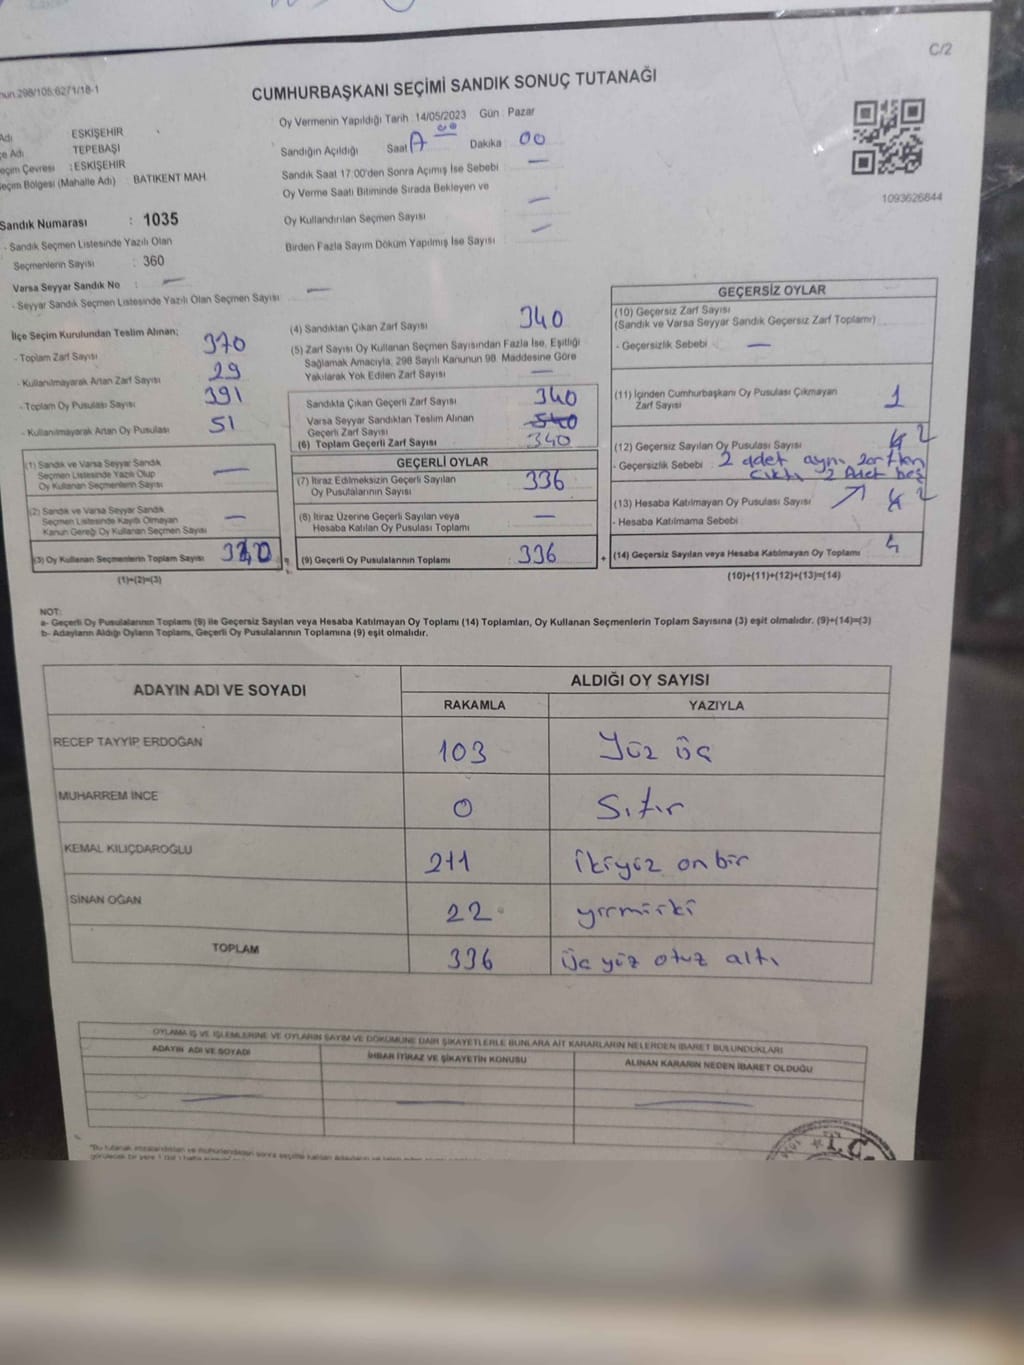 C/2
298/105;62/1/18-1
CUMHURBAŞKANI SEÇİMİ SANDIK SONUÇ TUTANAĞI
Adı ESKİŞEHİR
Adı TEPEBAŞI
Seçim Çevresi : ESKİŞEHİR
Seçim Bölgesi (Mahalle Adı) BATIKENT MAH.
Oy Vermenin Yapıldığı Tarih : 14/05/2023 Gün : Pazar
Sandığın Açıldığı Saat Dakika 00
Sandık Saat 17:00'den Sonra Açımış İse Sebebi —
Oy Verme Saati Bitiminde Sırada Bekleyen ve
Oy Kullandırılan Seçmen Sayısı —
Birden Fazla Sayım Döküm Yapılmış İse Sayısı —
1093626844
Sandık Numarası : 1035
- Sandık Seçmen Listesinde Yazılı Olan
Seçmenlerin Sayısı : 360
Varsa Seyyar Sandık No : —
- Seyyar Sandık Seçmen Listesinde Yazılı Olan Seçmen Sayısı : —
İlçe Seçim Kurulundan Teslim Alınan;
- Toplam Zarf Sayısı 370
- Kullanılmayarak Artan Zarf Sayısı 29
- Toplam Oy Pusulası Sayısı 391
- Kullanılmayarak Artan Oy Pusulası 51
(1) Sandık ve Varsa Seyyar Sandık
Seçmen Listesinde Yazılı Olup
Oy Kullanan Seçmenlerin Sayısı —
(2) Sandık ve Varsa Seyyar Sandık
Seçmen Listesinde Kayıtlı Olmayan
Kanun Gereği Oy Kullanan Seçmen Sayısı —
(3) Oy Kullanan Seçmenlerin Toplam Sayısı
(1)+(2)=(3)
(4) Sandıktan Çıkan Zarf Sayısı 340
(5) Zarf Sayısı Oy Kullanan Seçmen Sayısından Fazla İse, Eşitliği
Sağlamak Amacıyla, 298 Sayılı Kanunun 98. Maddesine Göre
Yakılarak Yok Edilen Zarf Sayısı —
Sandıkta Çıkan Geçerli Zarf Sayısı 340
Varsa Seyyar Sandıktan Teslim Alınan
Geçerli Zarf Sayısı
(6) Toplam Geçerli Zarf Sayısı 340
GEÇERLİ OYLAR
(7) İtiraz Edilmeksizin Geçerli Sayılan
Oy Pusulalarının Sayısı 336
(8) İtiraz Üzerine Geçerli Sayılan veya
Hesaba Katılan Oy Pusulası Toplamı —
(9) Geçerli Oy Pusulalarının Toplamı : 336
GEÇERSİZ OYLAR
(10) Geçersiz Zarf Sayısı
(Sandık ve Varsa Seyyar Sandık Geçersiz Zarf Toplamı)
- Geçersizlik Sebebi —
(11) İçinden Cumhurbaşkanı Oy Pusulası Çıkmayan
Zarf Sayısı 1
(12) Geçersiz Sayılan Oy Pusulası Sayısı 2
- Geçersizlik Sebebi : 2 adet aynı zarftan
çıktı 2 Adet boş
(13) Hesaba Katılmayan Oy Pusulası Sayısı 2
- Hesaba Katılmama Sebebi
+ (14) Geçersiz Sayılan veya Hesaba Katılmayan Oy Toplamı : 4
(10)+(11)+(12)+(13)=(14)
NOT:
a- Geçerli Oy Pusulalarının Toplamı (9) ile Geçersiz Sayılan veya Hesaba Katılmayan Oy Toplamı (14) Toplamları, Oy Kullanan Seçmenlerin Toplam Sayısına (3) eşit olmalıdır. (9)+(14)=(3)
b- Adayların Aldığı Oyların Toplamı, Geçerli Oy Pusulalarının Toplamına (9) eşit olmalıdır.
ADAYIN ADI VE SOYADI
ALDIĞI OY SAYISI
RAKAMLA YAZIYLA
RECEP TAYYİP ERDOĞAN 103 Yüz üç
MUHARREM İNCE 0 Sıfır
KEMAL KILIÇDAROĞLU 211 ikiyüz onbir
SİNAN OĞAN 22 yirmiiki
TOPLAM 336 üç yüz otuz altı
OYLAMA İŞ VE İŞLEMLERİNE VE OYLARIN SAYIM VE DÖKÜMÜNE DAİR ŞİKAYETLERLE BUNLARA AİT KARARLARIN NELERDEN İBARET BULUNDUKLARI
ADAYIN ADI VE SOYADI İHBAR İTİRAZ VE ŞİKAYETİN KONUSU ALINAN KARARIN NEDEN İBARET OLDUĞU
— — —
T.C.